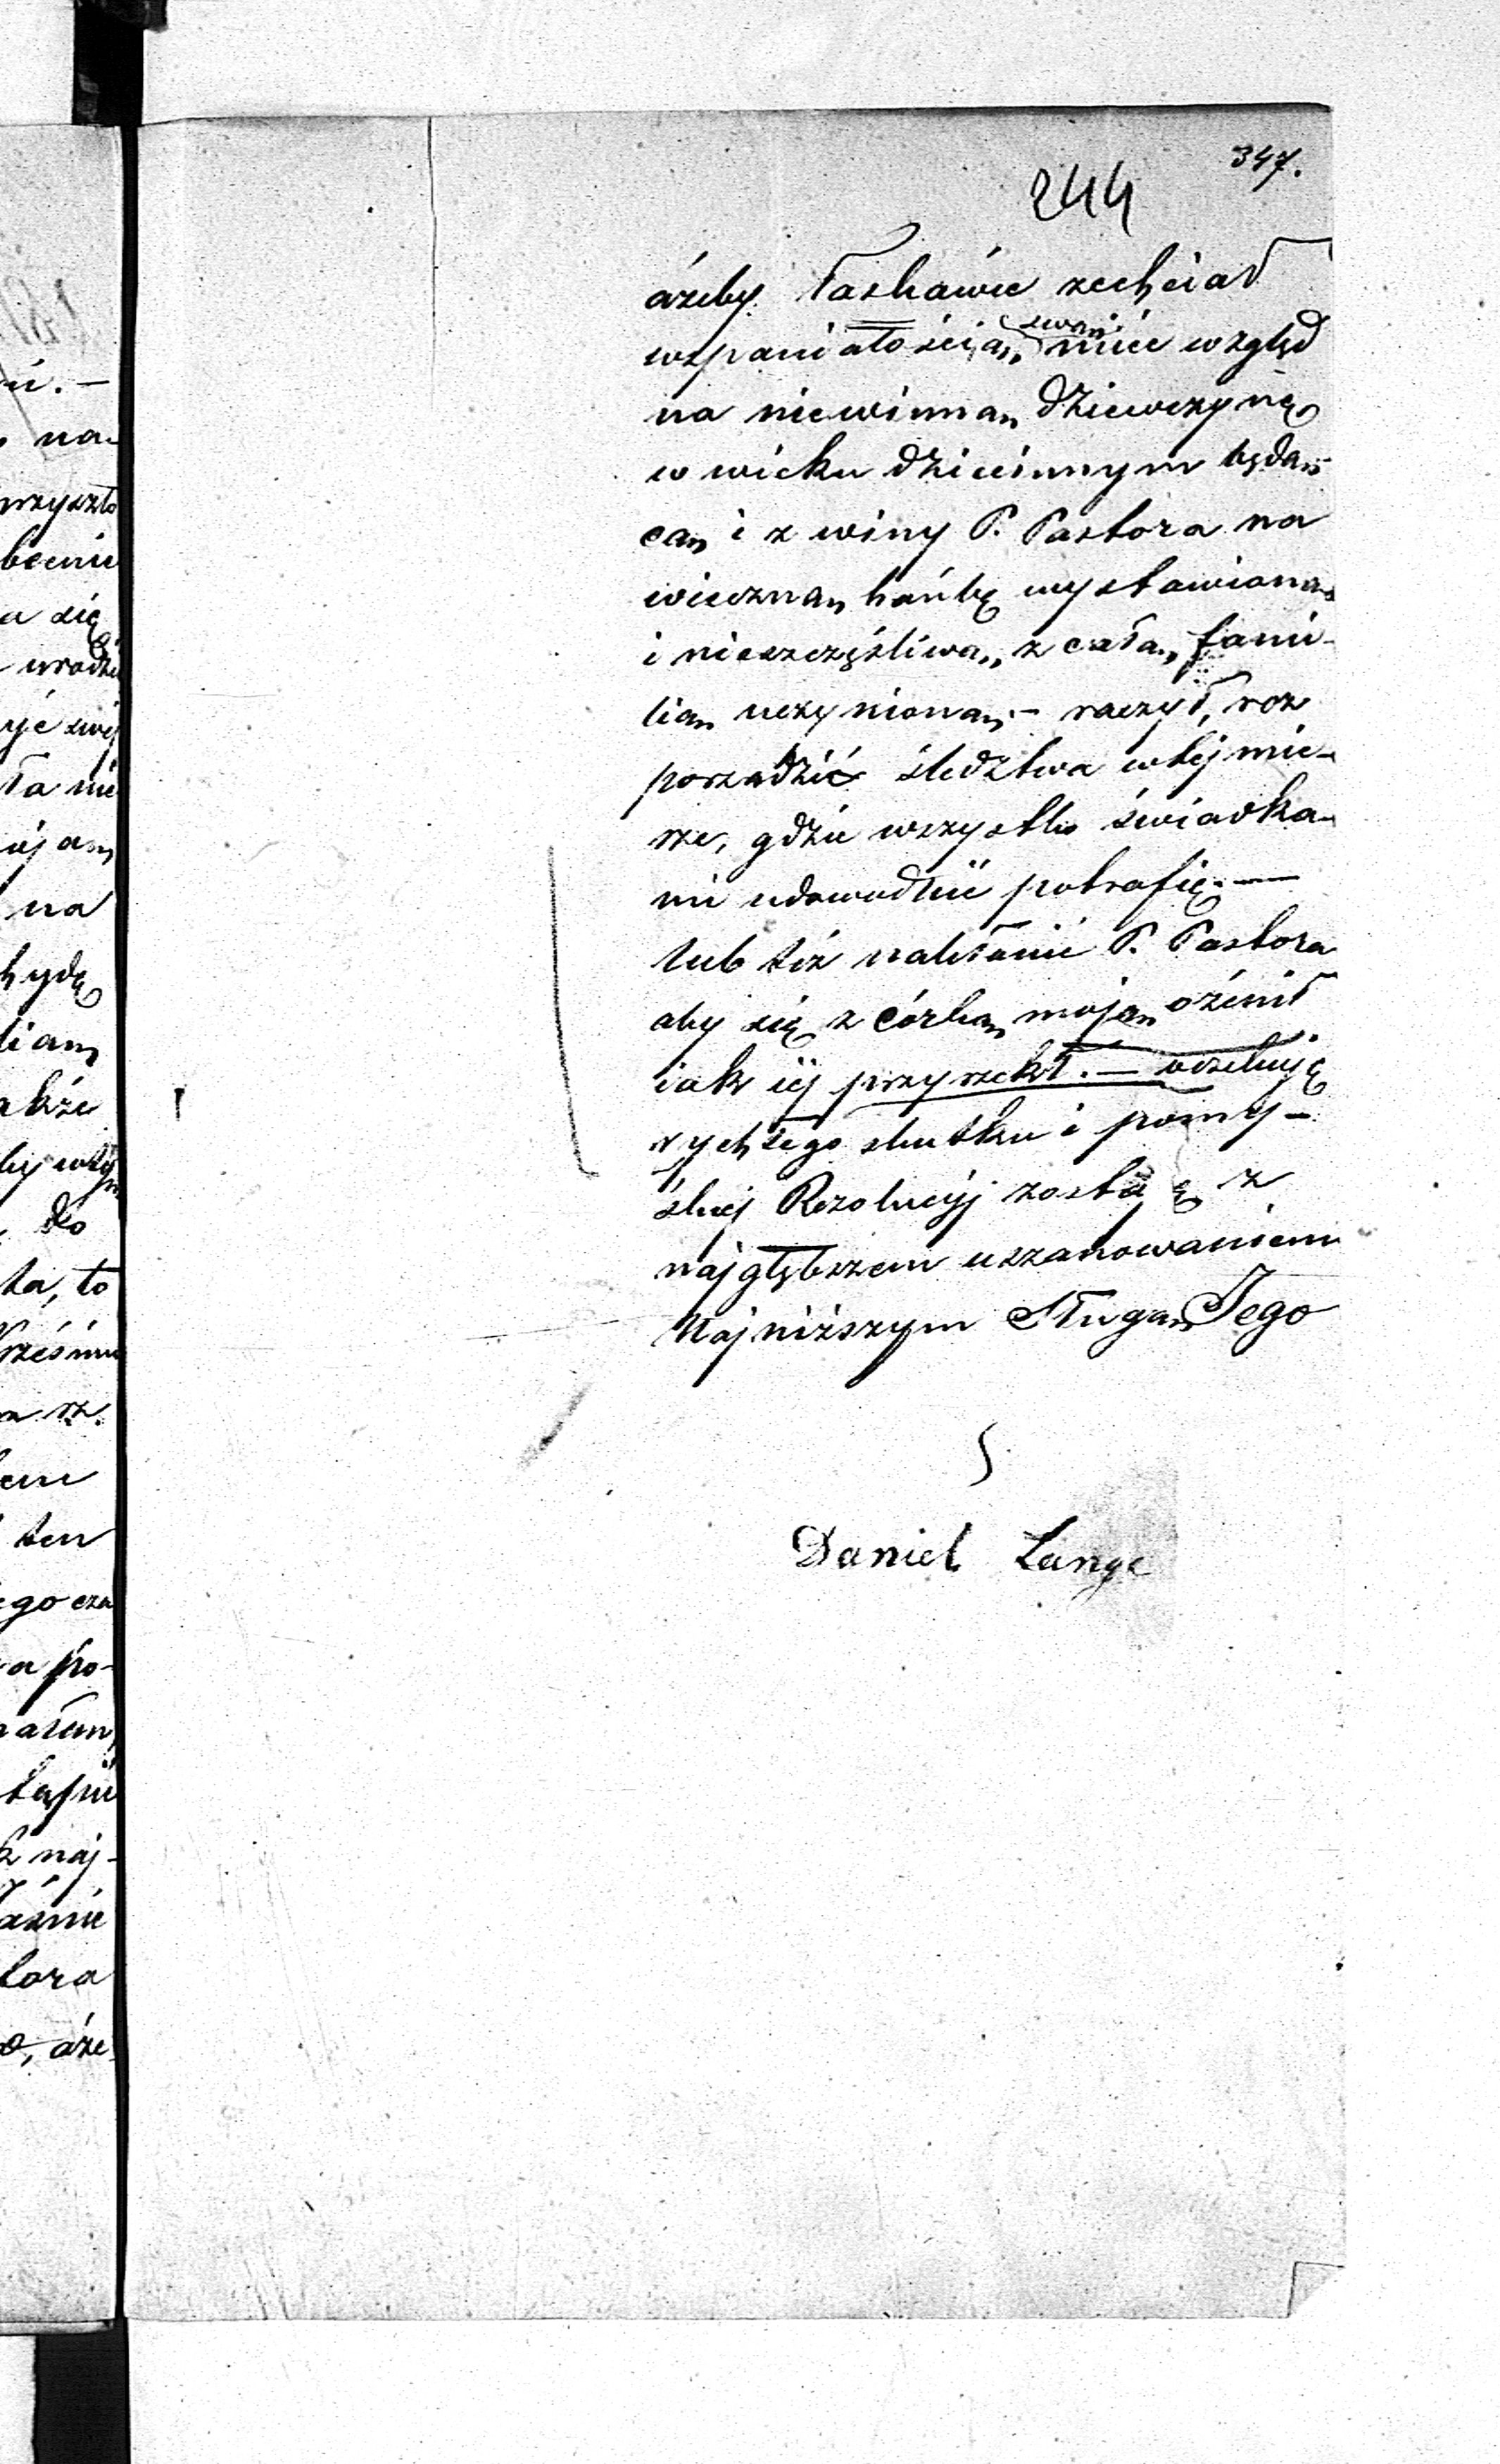 347.
244
ażeby łaskawie zechciał
swą
wspaniałością, mieć wzgląd
na niewinną dziewczynę
w wieku dziecinnym będą-
cą i z winy P. Pastora na
wieczną hańbę wystawioną
i nieszczęśliwą, z całą fami-
lią uczynioną; – raczył, roz
porządzić śledztwa w tej mie-
rze, gdzie wszystko świadka-
mi udowodnić potrafię. —
lub też nakłonić P. Pastora
aby się z córką moją ożenił
jak jej przyrzekł. — oczekuję
rychłego skutku i pomy-
ślnej Rezolucyj zostaję z
najgłębszem uszanowaniem
Najniższym Sługą Jego
Daniel Lange
ći. –
na-
przyszło
się
urodzi
yć swej
ła nie
na
hydę
akże
do
ta, to
ten
ego cza
a po-
naj-
tora
o, aże